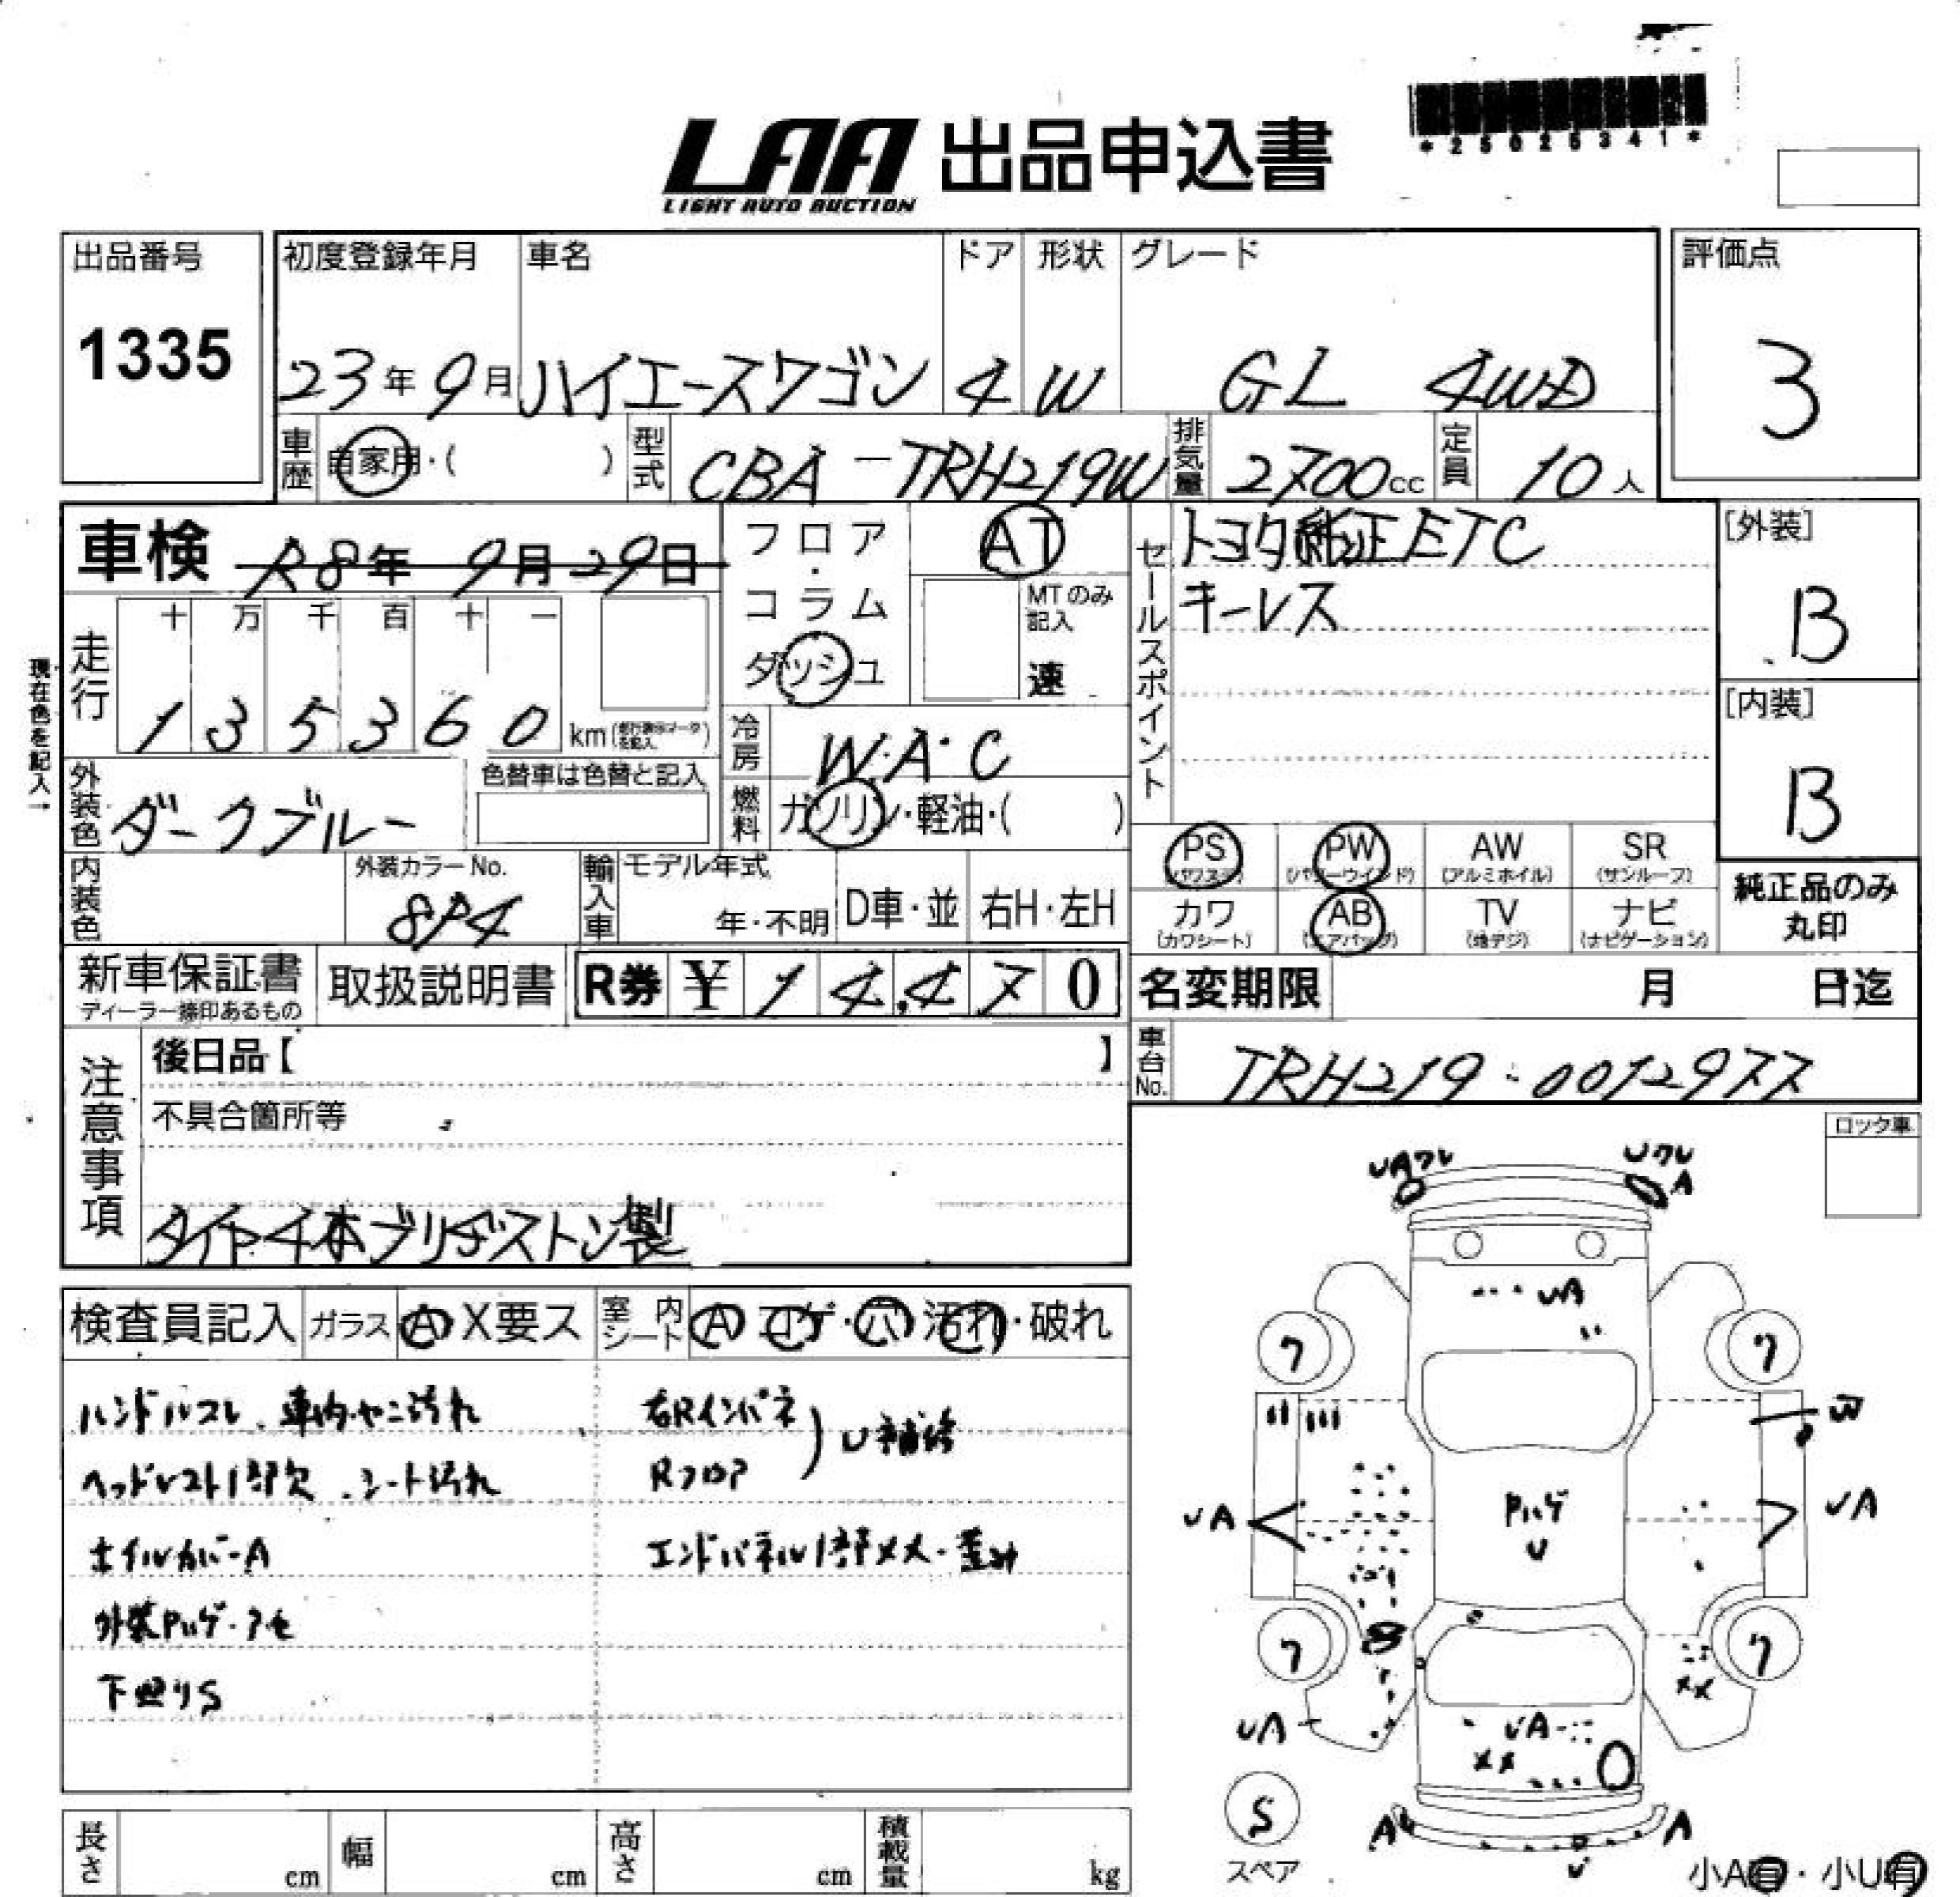 *25025341*
LAA 出品申込書
LIGHT AUTO AUCTION
出品番号
1335
初度登録年月 車名 ドア 形状 グレード
23年9月 ハイエースワゴン 4 W GL 4WD
評価点
3
車歴 自家用・( ) 型式 CBA-TRH219W 排気量 2700cc 定員 10人
車検 R8年 9月29日
フロア・コラム
ダッシュ
AT
MTのみ記入
速
セールスポイント
トヨタ純正ETC
キーレス
[外装]
B
[内装]
B
現在色を記入→
走行
十 万 千 百 十 一
1 3 5 3 6 0 km
冷房 W・A・C
外装色 ダークブルー
色替車は色替と記入
燃料 ガソリン・軽油・( )
PS (パワステ) PW (パワーウインド) AW (アルミホイル) SR (サンルーフ)
カワ (カワシート) AB (エアバッグ) TV (地デジ) ナビ (ナビゲーション)
純正品のみ
丸印
内装色
外装カラーNo.
8P4
輸入車 モデル年式
年・不明 D車・並 右H・左H
新車保証書
ディーラー捺印あるもの
取扱説明書
R券 ¥ 1 4,4 7 0
名変期限 月 日迄
注意事項
後日品【 】
車台No. TRH219-0012977
不具合箇所等
タイヤ4本ブリヂストン製
ロック車
検査員記入 ガラス A X要ス 室内シート A コゲ・穴・汚れ・破れ
ハンドルスレ、車内ヤニ汚れ
ヘッドレスト1部欠、シート汚れ
ホイルカバーA
外装Pハゲ・アセ
下廻りS
右Rインパネ
Rフロア
U補修
エンドパネル1部メメ・歪み
UAワレ
Uワレ
A
UA
ワ
ワ
W
UA
Pハゲ
U
UA
ワ
ワ
XX
UA
UA
XX
S
スペア
A
A
U
小A有・小U有
長さ cm 幅 cm 高さ cm 積載量 kg